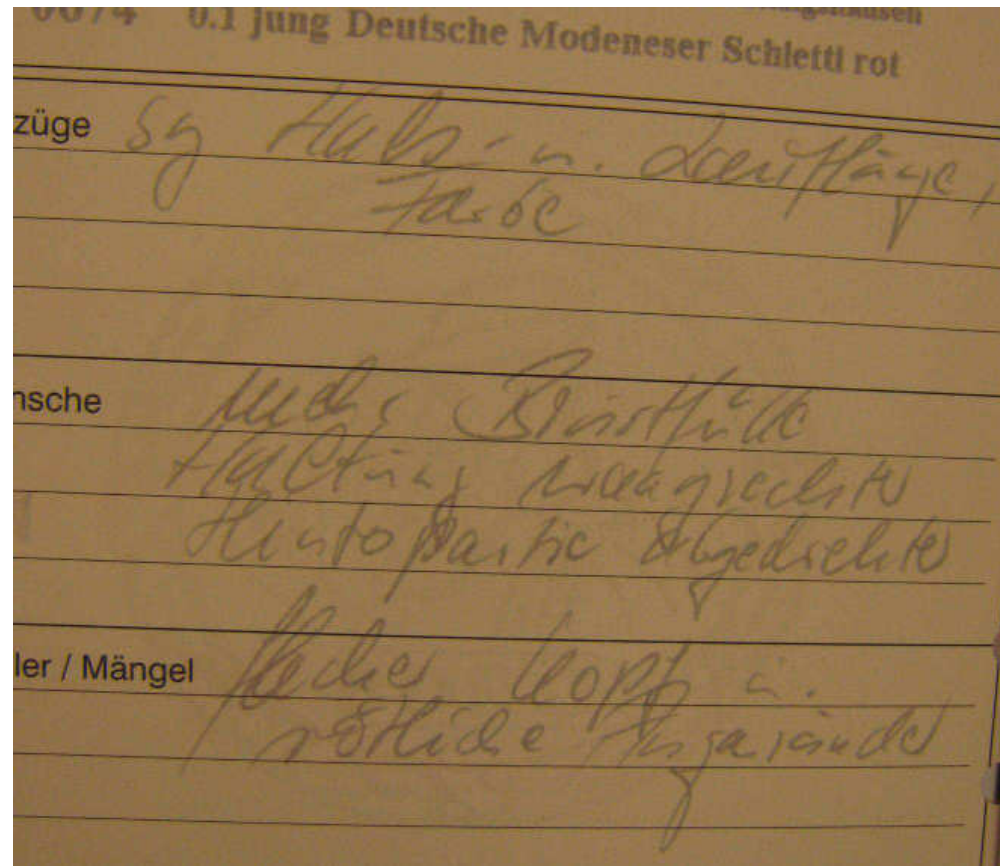 0074 0.1 jung Deutsche Modeneser Schietti rot
züge sg Hals- u. Lauflänge,
Farbe
nsche mehr Brustfülle
Haltung waagrechter
Hinterpartie abgedeckter
ler / Mängel flacher Kopf u.
rötliche Augenränder